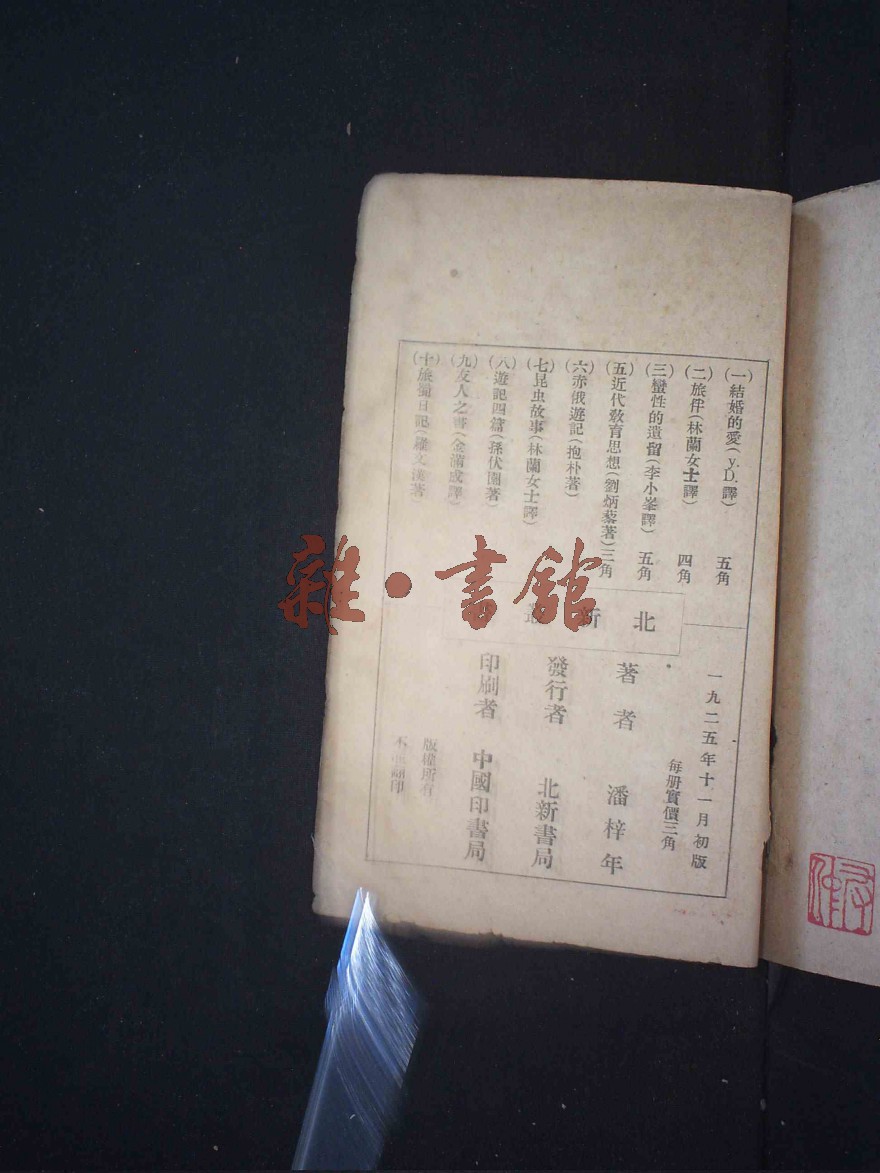 (一)結婚的愛(y.D.譯)五角
(二)旅伴(林蘭女士譯)四角
(三)蠻性的遺留(李小峯譯)五角
(五)近代教育思想(劉炳藜著)三角
(六)赤俄遊記(抱朴著)
(七)昆虫故事(林蘭女士譯)
(八)遊記四篇(孫伏園著)
(九)友人之書(金滿成譯)
(十)旅蜀日記(羅文漢著)
北新
一九二五年十一月初版
每册實價三角
著者 潘梓年
發行者 北新書局
印刷者 中國印書局
版權所有
不 翻印
雜·書館